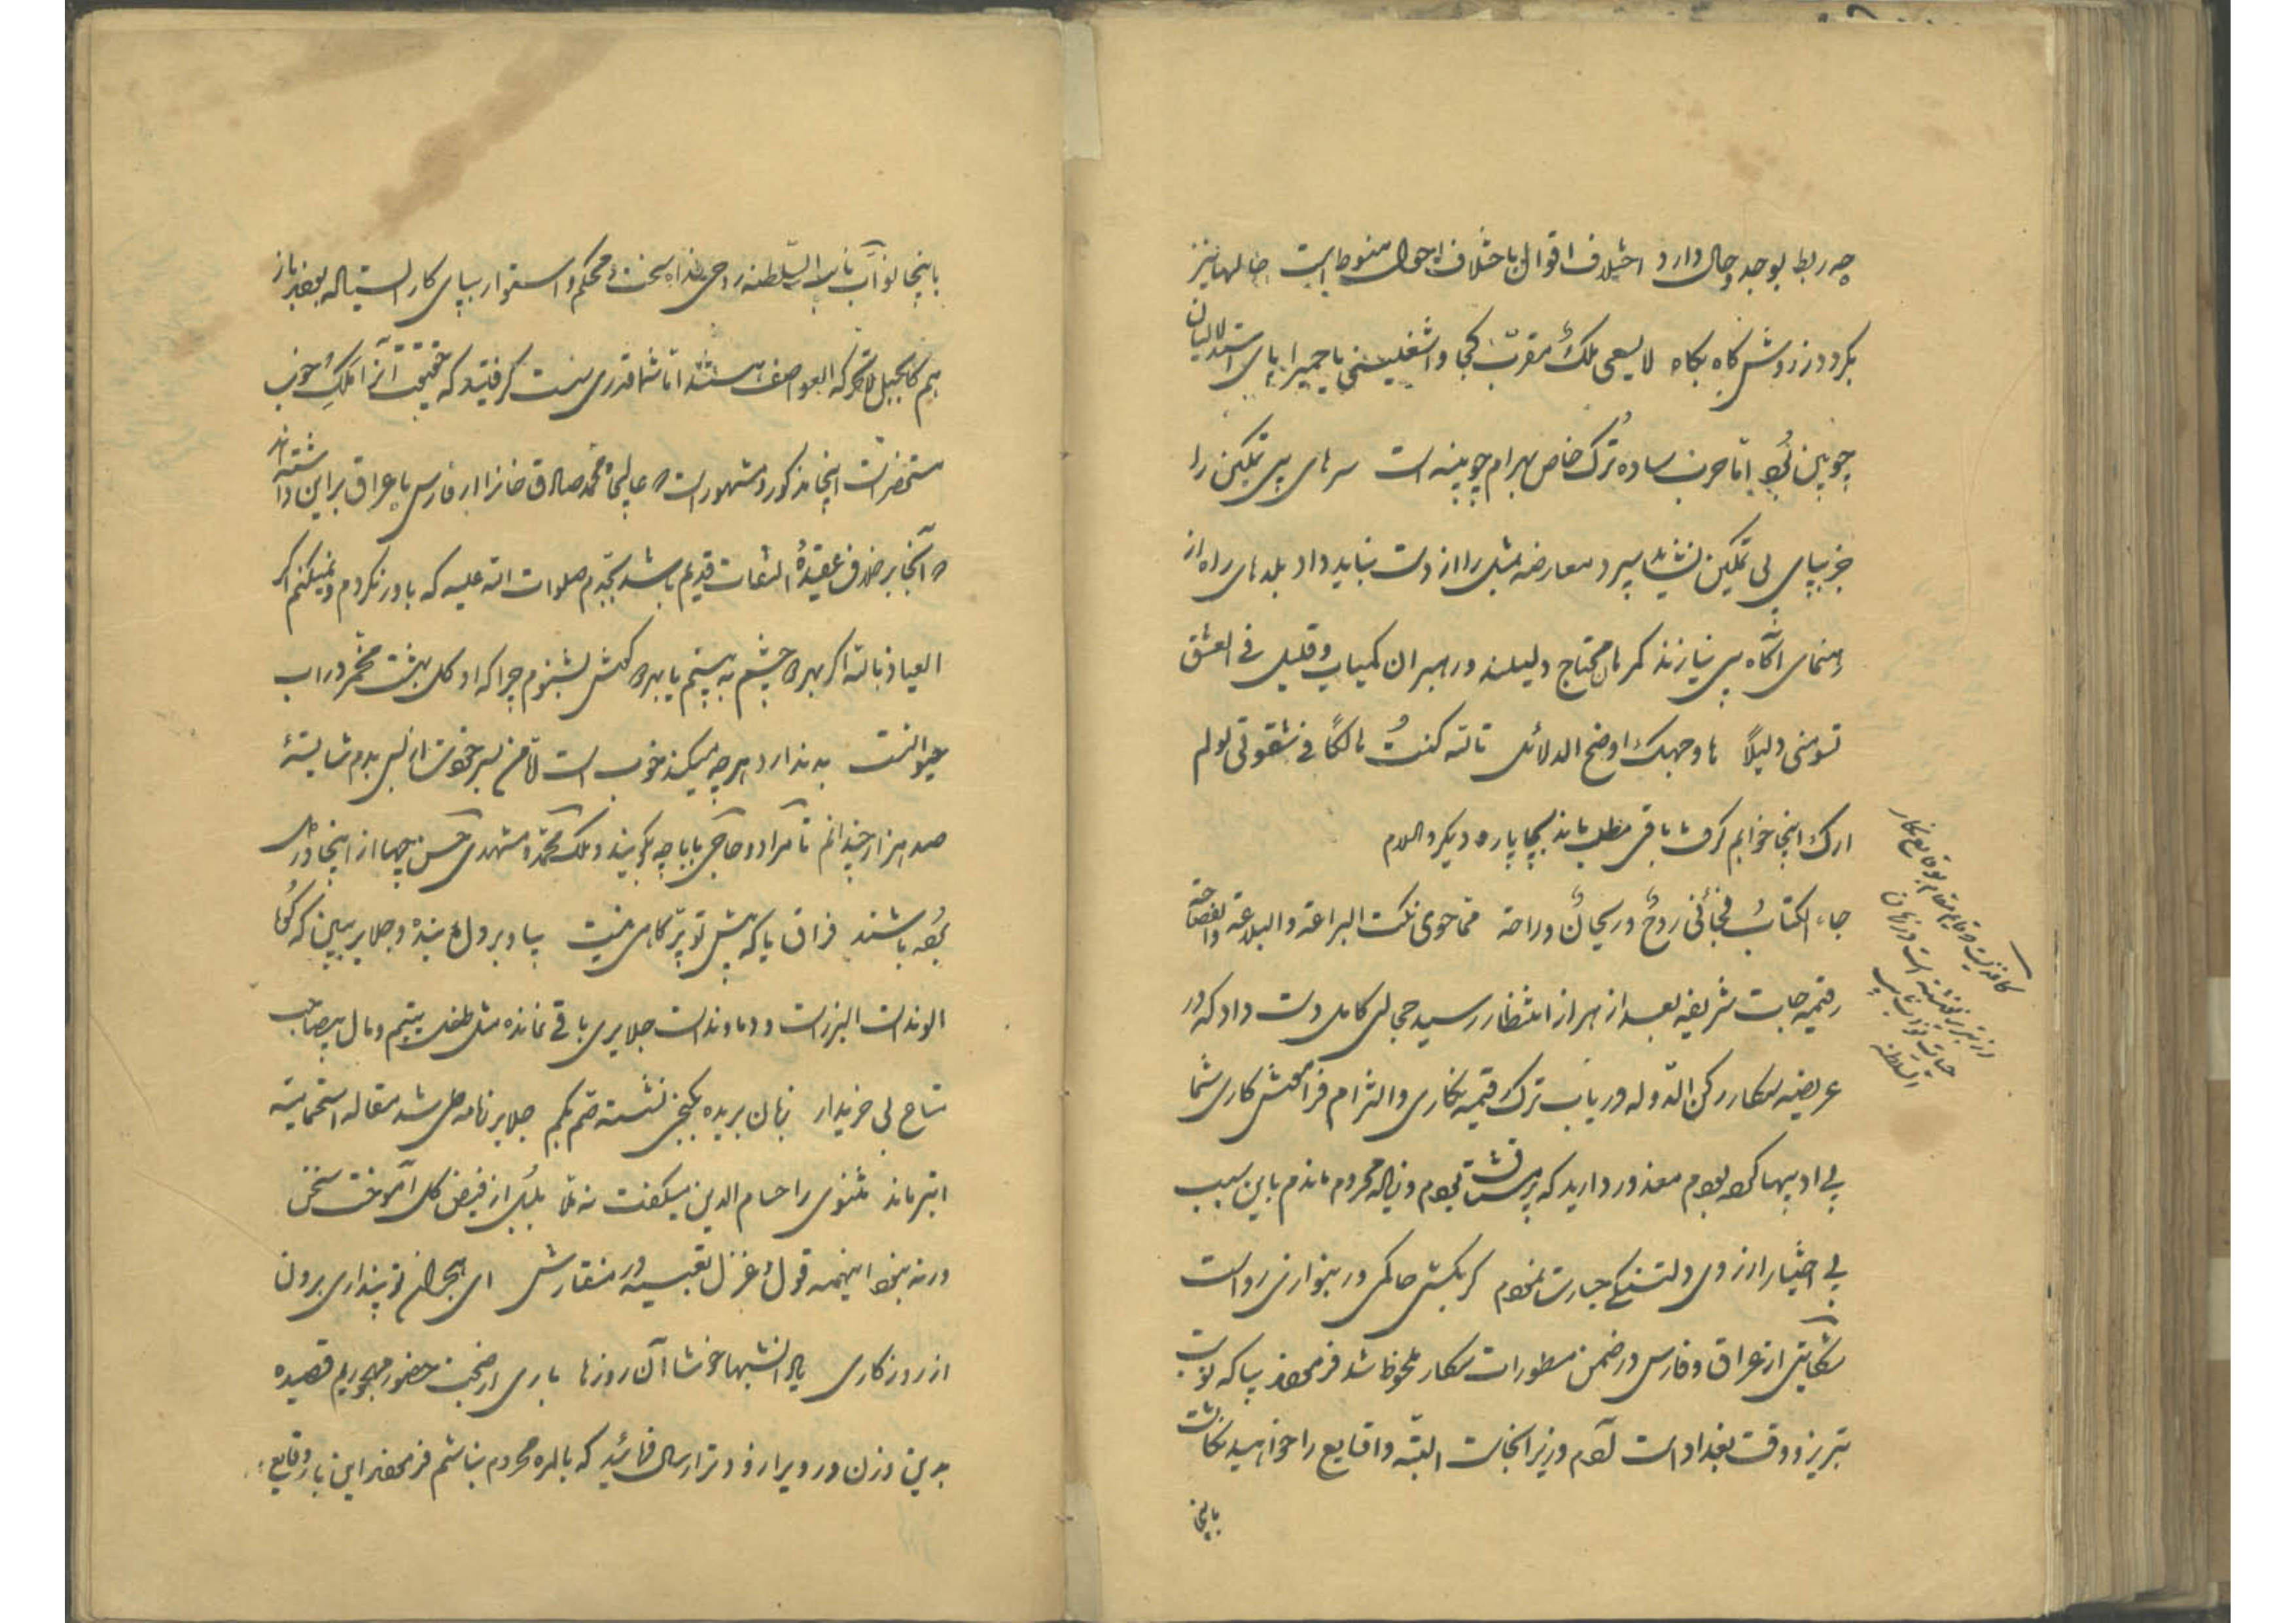 چه ربط بوجد و حال دارد اختلاف اقوال باختلاف احوال منوط است حالها نیز
بگردد در روش گاه بگاه لا یسعی ملک مقرب کجا و اشغلینی یا حمیرا پای استدلالیان
چوبین بود اما حرف ساده ترک خاص بهرام چوبینه است سرهای بی تمکین را
جز بپای بی تمکین نشاید سپرد معارضه بمثل را از دست نباید داد بلدهای راه از
رهنمای آگاه بی نیازند گمرهان محتاج دلیلند و رهبران کمیاب و قلیل فی العشق
تسومنی دلیلاً ها وجهک اوضح الدلائل تالله کنت هالکا فی شقوتی لولم
ارک اینجا خوابم گرفت باقی مطلب بماند بچاپاره دیگر والسلام
جاء الکتاب فجائنی روح و ریحان و راحة مما حوی نکت البراعة والبلاغة والفصاحة
رقیمه جات شریفه بعد از هزار انتظار رسید خجالی کامل دست داد که در
عریضه سرکار رکن الدوله در باب ترک رقیمه نگاری و التزام فرامش کاری شما
بی ادبیها کرده بودم معذور دارید که پر مشتاق بودم و زیاده محروم ماندم باین سبب
بی اختیار از روی دلتنگی جسارت نمودم گر بکشی حاکمی ور بنوازی رواست
شکایتی از عراق و فارس در ضمن مسطورات سرکار ملحوظ شد فرمودند بیا که نوبت
تبریز و وقت بغداد است لاجرم وزیر آنجاست البته واقایع را خواهید نگاشت
باینجا
کاغذیست که قایم مقام بوقایع نگار
در تبریز نوشته است در زمان
حیات نواب نایب
السلطنه
باینجا نواب نایب السلطنه روحی فداه سخت و محکم و استوار بپای کار ایستاده بودند باز
هم کالجبل لا تحرکه العواصف هستند اما شما قدری سست گرفتید که حقیقت آنرا ملک خوب
مستحضر است اینجا مذکور و مشهور است که عالیجاه محمد صادق خانرا از فارس یا عراق بر این داشته اند
که آنجا بر خلاف عقیده التفات قدیم باشد بجدم صلوات الله علیه که باور نکردم و نمیکنم اگر
العیاذ بالله اگر بهر دو چشم به بینم یا بهر دو گوش بشنوم چرا که او گل بهشت مخمر در آب
حیوانست بد ندارد هرچه میکند خوب است لا من بر خود است از بس بدم شایسته
صد هزار چندانم تا مراد و حاجی بابا چه گویند و ملک محمد و مشهدی حسن چها از اینجا درس
بوده باشند فراق یار که پیش تو پر کاهی نیست بیا و بر دل بنده و جلایر ببین که کوه
الوند است البرز است و دماوند است جلایری باقی نمانده مثل طفل یتیم و مال بیصاحب
متاع بی خریدار زبان بریده بکنجی نشسته صم بکم جلایر نامه طی شد مقاله استحمامیه
ابتر ماند مثنوی را حسام الدین میگفت نه ملا بلبل از فیض گل آموخت سخن
ورنه نبود اینهمه قول و غزل تعبیه در منقارش ای هجران تو پنداری برون
از روزگاری یاد آن شبها خوشا آن روزها باری از صحبت حضور مهجوریم قصیده
بدین وزن و رویرا زودتر ارسال فرمائید که بالمره محروم نباشم فرمودند این بار وقایع